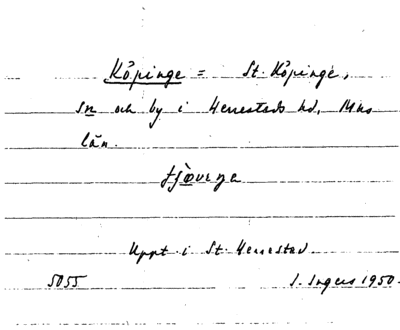 Köpinge = St. Köpinge,
sn och by i Herrestads hd, Mhs
län.
Uppt i St. Herrestad
5055 I. Ingers 1950.